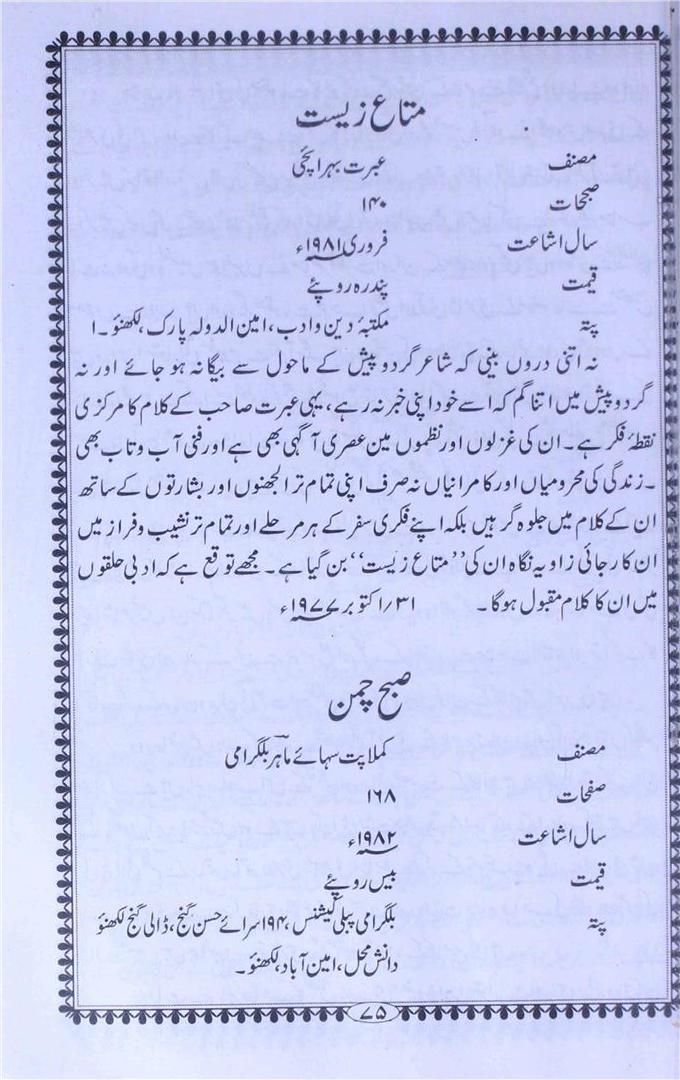 متاع زیست
مصنف عبرت بہرائچی
صبحات ۱۴۰
سال اشاعت فروری ۱۹۸۱ء
قیمت پندرہ روپئے
پتہ مکتبۂ دین و ادب، امین الدولہ پارک، لکھنؤ۔۱
نہ اتنی دروں بینی کہ شاعر گرد و پیش کے ماحول سے بیگانہ ہو جائے اور نہ
گرد و پیش میں اتنا گم کہ اسے خود اپنی خبر نہ رہے، یہی عبرت صاحب کے کلام کا مرکزی
نقطۂ فکر ہے۔ ان کی غزلوں اور نظموں مین عصری آگہی بھی ہے اور فنی آب و تاب بھی
۔ زندگی کی محرومیاں اور کامرانیاں نہ صرف اپنی تمام تر الجھنوں اور بشارتوں کے ساتھ
ان کے کلام میں جلوہ گر ہیں بلکہ اپنے فکری سفر کے ہر مرحلے اور تمام تر نشیب و فراز میں
ان کا رجائی زاویہ نگاہ ان کی ’’متاع زیست‘‘ بن گیا ہے۔ مجھے توقع ہے کہ ادبی حلقوں
میں ان کا کلام مقبول ہوگا۔ ۳۱/اکتوبر ۱۹۷۷ء
صبح چمن
مصنف کملاپت سہائے ماہرؔ بلگرامی
صفحات ۱۶۸
سال اشاعت ۱۹۸۲ء
قیمت بیس روپئے
پتہ بلگرامی پبلی کیشنس، ۱۹۴ سرائے حسن گنج، ڈالی گنج لکھنؤ
دانش محل، امین آباد، لکھنؤ۔
۷۵